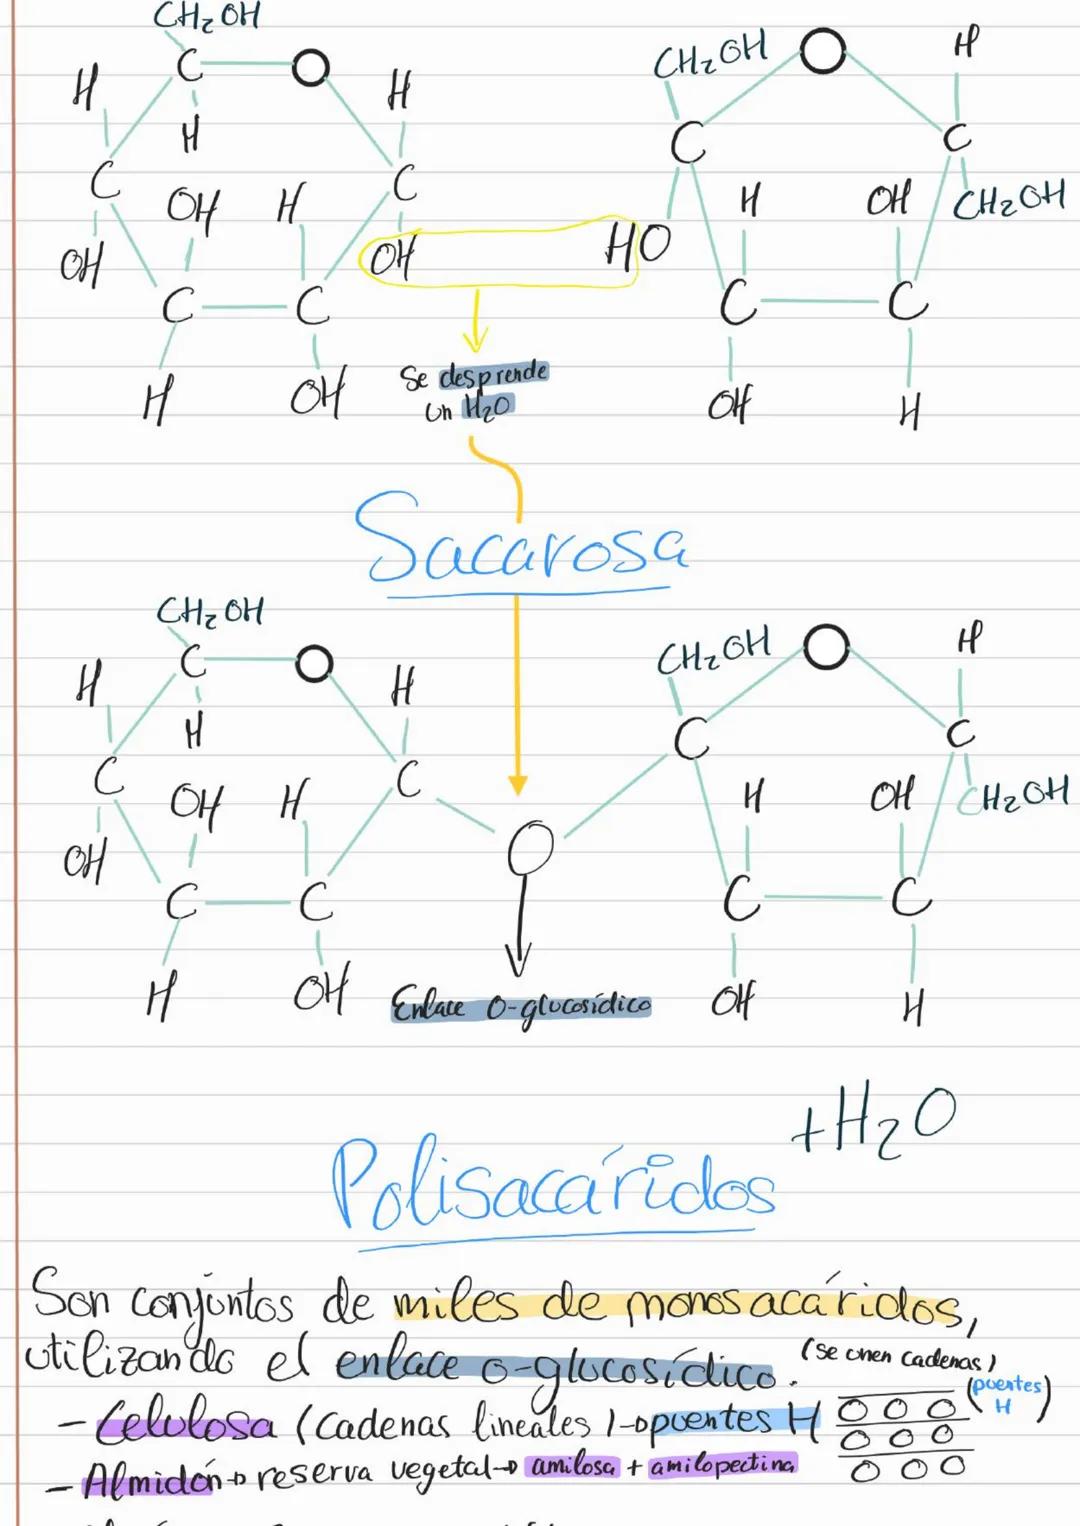 CH₂OH
C O
H H
H
C C
OH H
OH OH
C C
H OH
CH₂OH O H
C C
H OH CH₂OH
HO
C C
OH H
Se desprende
un H₂O
Sacarosa
CH₂OH
C O
H H
H
C C
OH H
OH
C C
H OH
O
CH₂OH O H
C C
H OH CH₂OH
C C
OH H
Enlace O-glucosídico
+H₂O
Polisacáridos
Son conjuntos de miles de monosacáridos,
utilizando el enlace o-glucosídico.
(se unen cadenas)
(puentes H)
- Celulosa (Cadenas lineales) → puentes H
- Almidón → reserva vegetal → amilosa + amilopectina